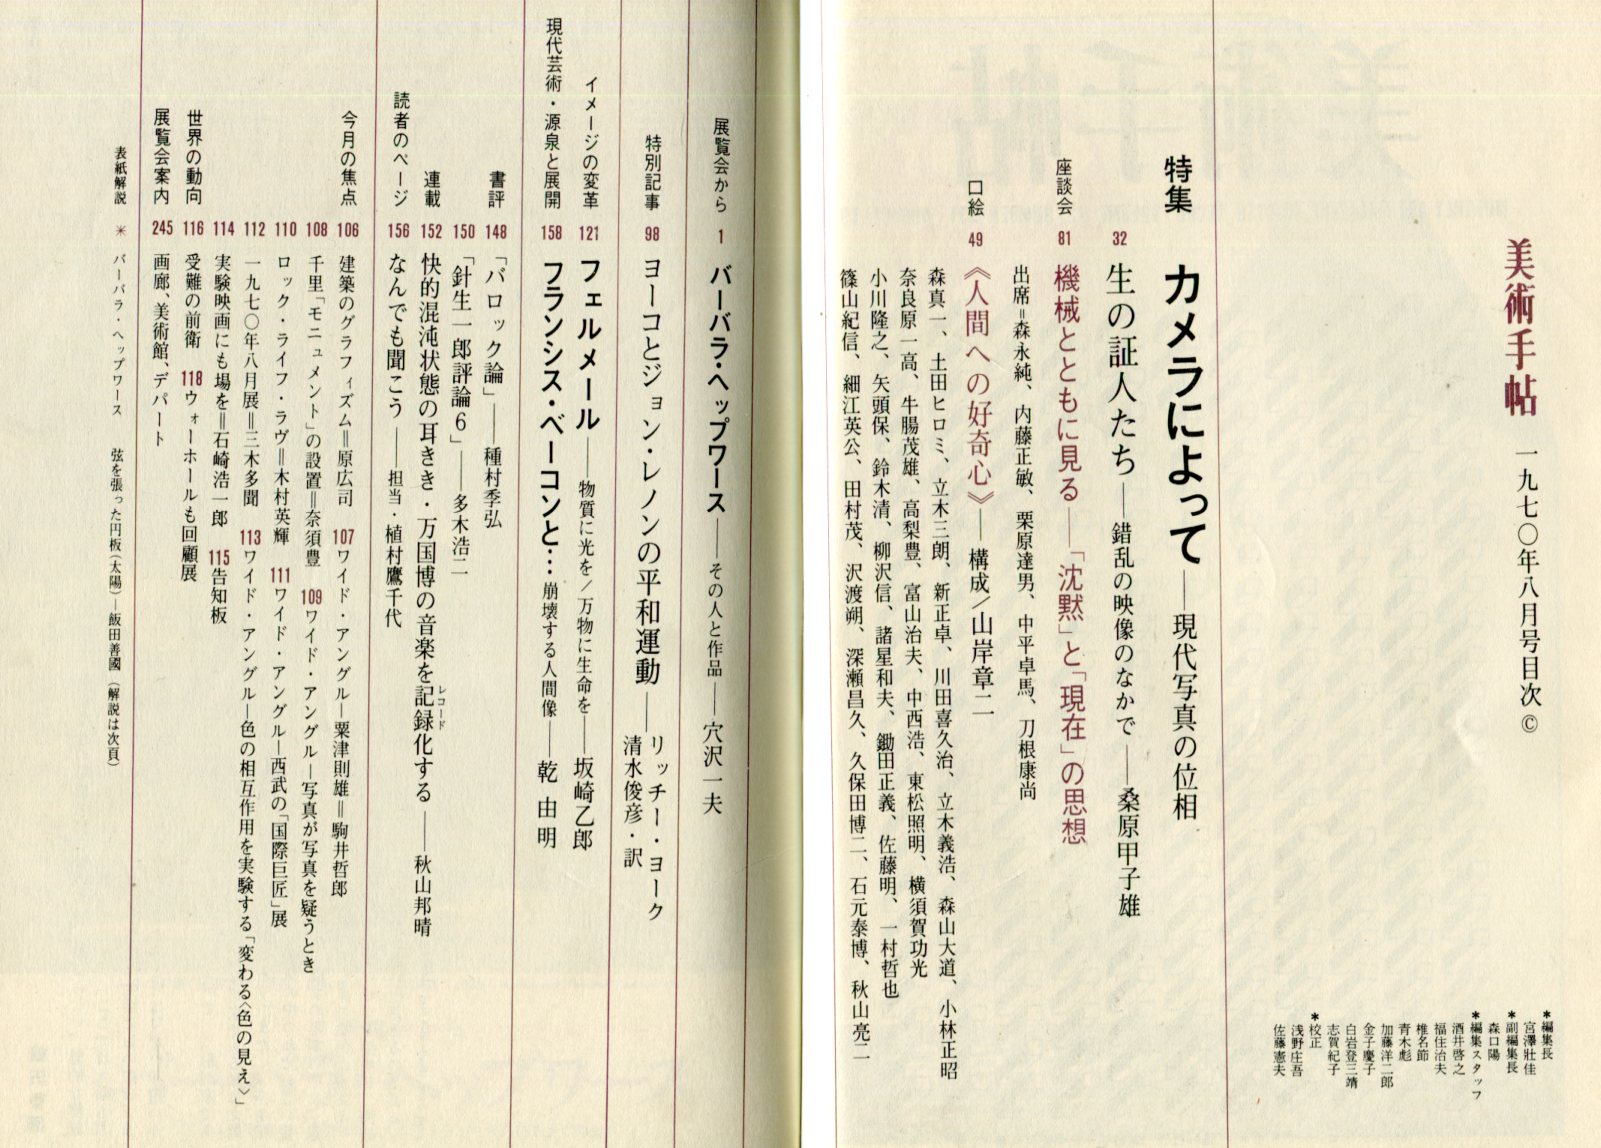 美術手帖 一九七〇年八月号目次 ©
*編集長
宮澤壯佳
*副編集長
森口陽
*編集スタッフ
酒井啓之
福住治夫
椎名節
青木彪
加藤洋二郎
金子慶子
白岩登三靖
志賀紀子
*校正
浅野庄吾
佐藤憲夫
特集 カメラによって―現代写真の位相
32 生の証人たち―錯乱の映像のなかで―桑原甲子雄
座談会 81 機械とともに見る―「沈黙」と「現在」の思想
出席=森永純、内藤正敏、栗原達男、中平卓馬、刀根康尚
口絵 49 《人間への好奇心》―構成/山岸章二
森真一、土田ヒロミ、立木三朗、新正卓、川田喜久治、立木義浩、森山大道、小林正昭
奈良原一高、牛腸茂雄、高梨豊、富山治夫、中西浩、東松照明、横須賀功光
小川隆之、矢頭保、鈴木清、柳沢信、諸星和夫、鋤田正義、佐藤明、一村哲也
篠山紀信、細江英公、田村茂、沢渡朔、深瀬昌久、久保田博二、石元泰博、秋山亮二
展覧会から 1 バーバラ・ヘップワース―その人と作品―穴沢一夫
特別記事 98 ヨーコとジョン・レノンの平和運動―リッチー・ヨーク
清水俊彦・訳
イメージの変革 121 フェルメール―物質に光を/万物に生命を―坂崎乙郎
現代芸術・源泉と展開 158 フランシス・ベーコンと…崩壊する人間像―乾由明
書評 148 「バロック論」―種村季弘
150 「針生一郎評論6」―多木浩二
連載 152 快的混沌状態の耳きき・万国博の音楽を記録化する―秋山邦晴
レコード
読者のページ 156 なんでも聞こう―担当・植村鷹千代
今月の焦点 106 建築のグラフィズム=原広司 107 ワイド・アングル―粟津則雄=駒井哲郎
108 千里「モニュメント」の設置=奈須豊 109 ワイド・アングル―写真が写真を疑うとき
110 ロック・ライフ・ラヴ=木村英輝 111 ワイド・アングル―西武の「国際巨匠」展
112 一九七〇年八月展=三木多聞 113 ワイド・アングル―色の相互作用を実験する「変わる〈色の見え〉」
114 実験映画にも場を=石崎浩一郎 115 告知板
世界の動向 116 受難の前衛 118 ウォーホールも回顧展
展覧会案内 245 画廊、美術館、デパート
表紙解説 * バーバラ・ヘップワース 弦を張った円板(太陽)―飯田善國(解説は次頁)